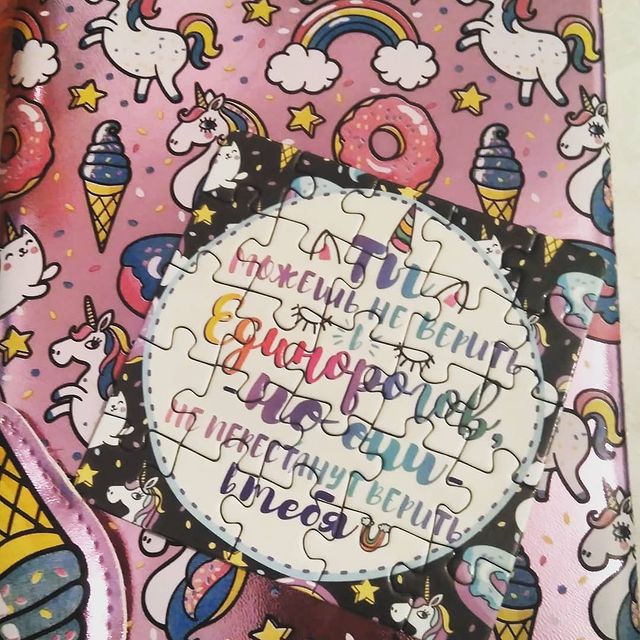 Ты
МОЖЕШЬ НЕ ВЕРИТЬ
в
Единорогов,
-но они-
НЕ ПЕРЕСТАНУТ ВЕРИТЬ
в тебя